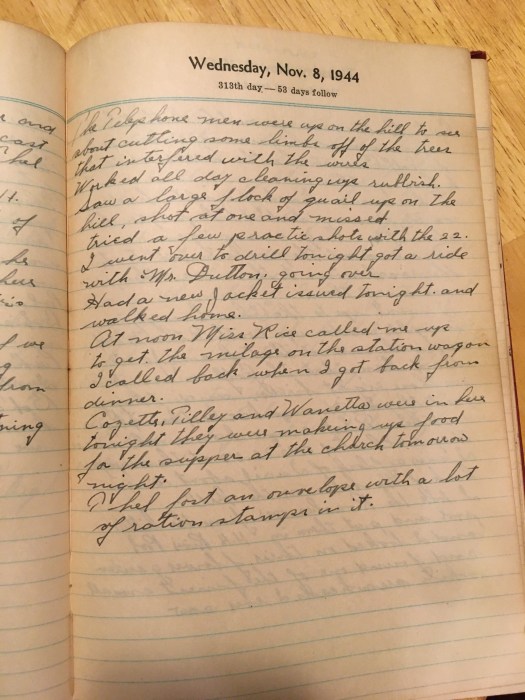 Wednesday, Nov. 8, 1944
313th day — 53 days follow
The Telephone men were up on the hill to see
about cutting some limbs off of the trees
that interfered with the wires
Worked all day cleaning up rubbish.
Saw a large flock of quail up on the
hill, shot at one and missed
tried a few practic shots with the 22.
I went over to drill tonight got a ride
with Mr. Dutton, going over
Had a new Jacket issued tonight. and
walked home.
At noon Miss Rice called me up
to get the milage on the station wagon
I called back when I got back from
dinner.
Cozette, Tilley and Wanetta were in here
tonight they were makeing up food
for the supper at the church tomorrow
night.
Thel lost an onvelope with a lot
of ration stamps in it.
and
cast
Thel
of
he
here
we
from